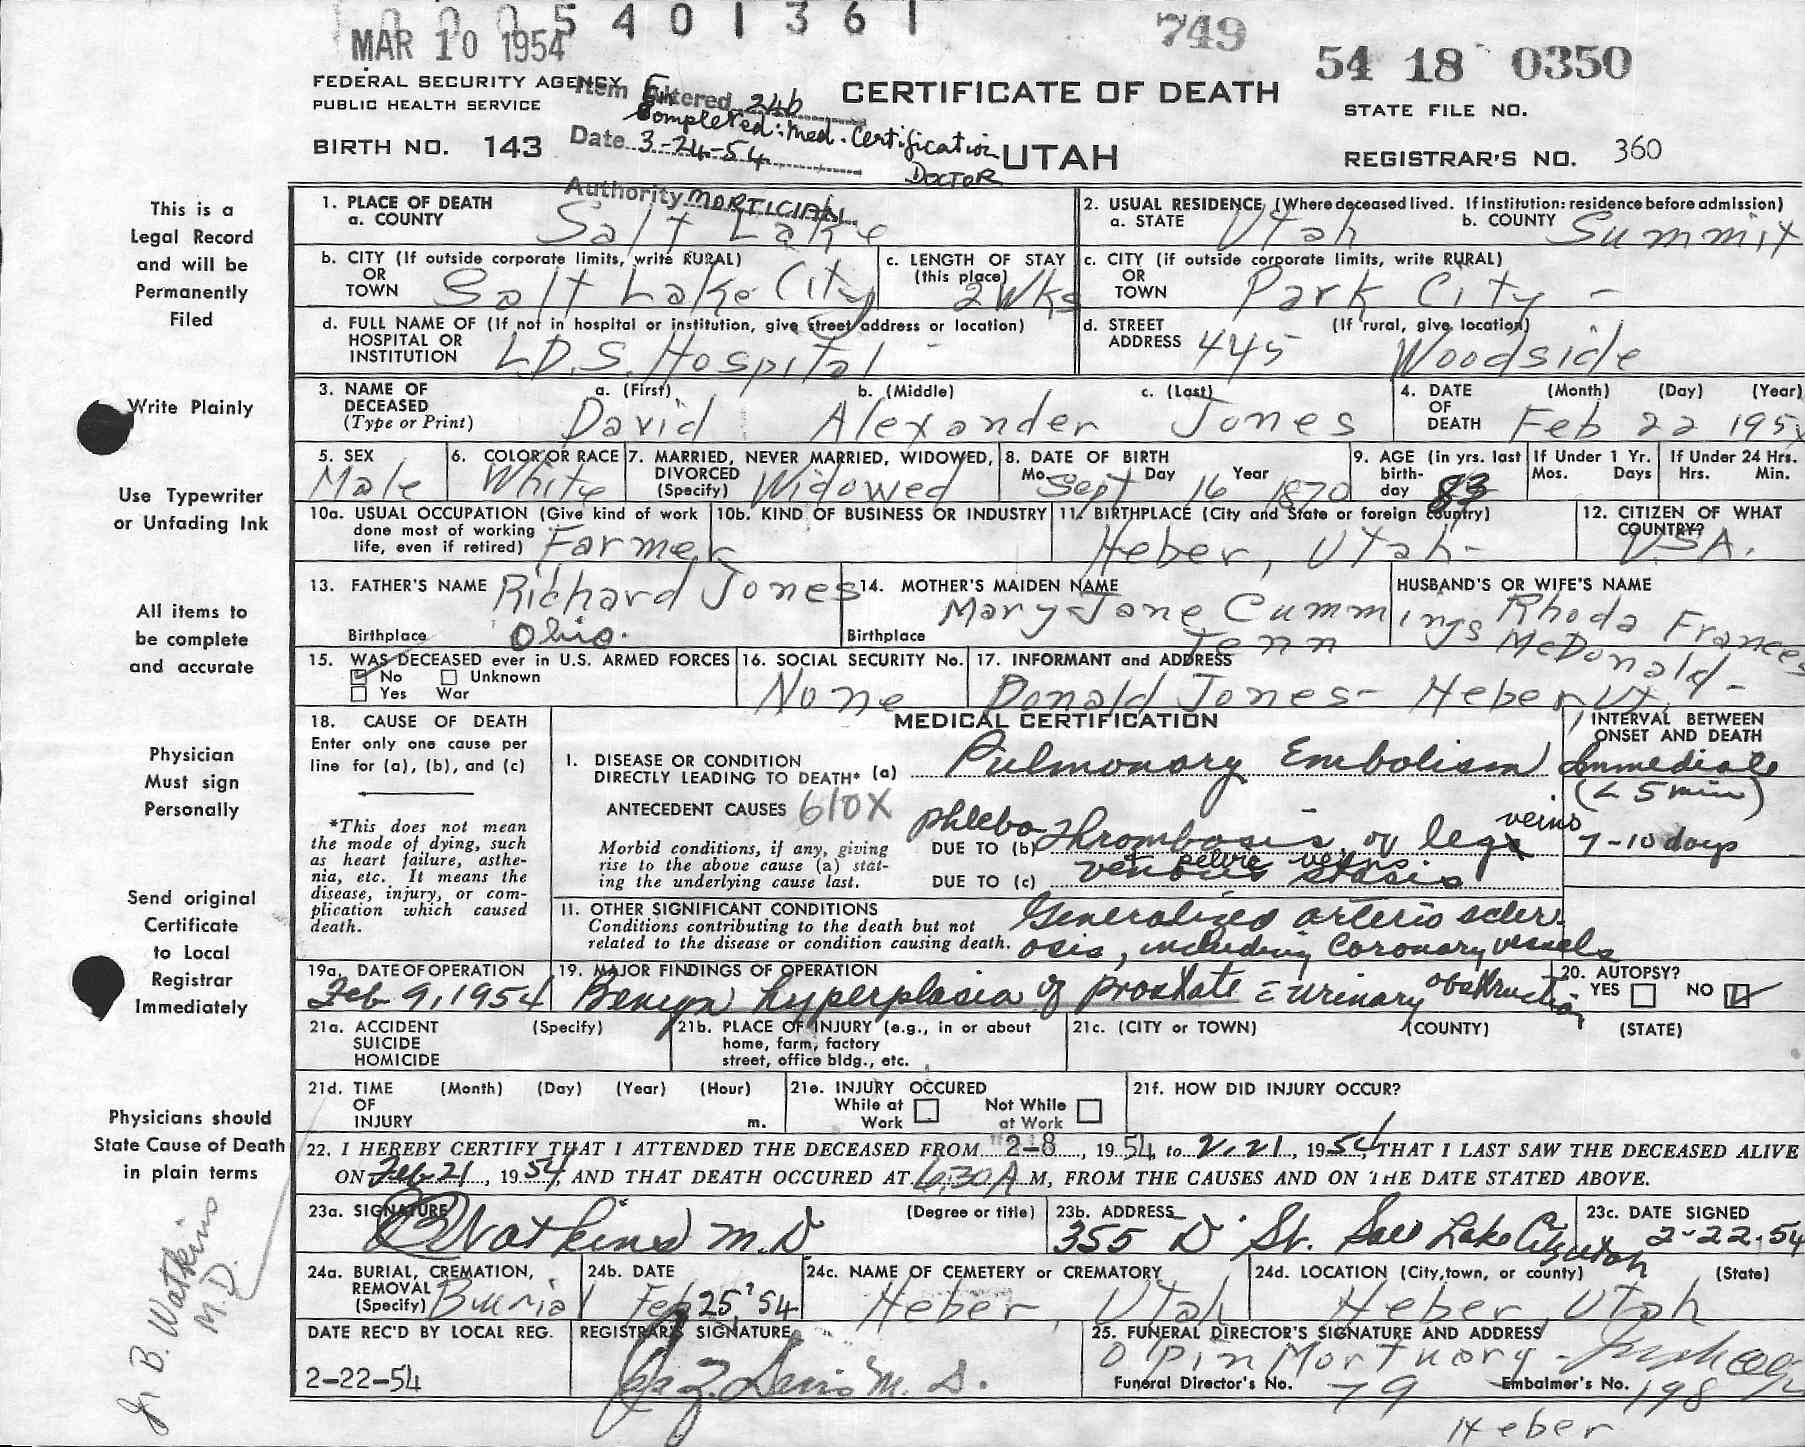 0 0 0 5 4 0 1 3 6 1
MAR 10 1954
749
54 18 0350
FEDERAL SECURITY AGENCY
PUBLIC HEALTH SERVICE
Item Entered 24b
Completed: Med. Certification
DOCTOR
CERTIFICATE OF DEATH
STATE FILE NO.
BIRTH NO. 143
Date 3-24-54
UTAH
REGISTRAR'S NO. 360
Authority MORTICIAN
This is a
Legal Record
and will be
Permanently
Filed
Write Plainly
Use Typewriter
or Unfading Ink
All items to
be complete
and accurate
Physician
Must sign
Personally
Send original
Certificate
to Local
Registrar
Immediately
Physicians should
State Cause of Death
in plain terms
J. B. Watkins
M.D.
1. PLACE OF DEATH
a. COUNTY Salt Lake
2. USUAL RESIDENCE (Where deceased lived. If institution: residence before admission)
a. STATE Utah b. COUNTY Summit
b. CITY (If outside corporate limits, write RURAL)
OR
TOWN Salt Lake City
c. LENGTH OF STAY
(this place)
2 Wks
c. CITY (if outside corporate limits, write RURAL)
OR
TOWN Park City -
d. FULL NAME OF (If not in hospital or institution, give street address or location)
HOSPITAL OR
INSTITUTION L.D.S. Hospital -
d. STREET (If rural, give location)
ADDRESS 445 Woodside
3. NAME OF
DECEASED
(Type or Print)
a. (First) b. (Middle) c. (Last)
David Alexander Jones
4. DATE (Month) (Day) (Year)
OF
DEATH Feb 22 1954
5. SEX
Male
6. COLOR OR RACE
White
7. MARRIED, NEVER MARRIED, WIDOWED,
DIVORCED
(Specify) Widowed
8. DATE OF BIRTH
Mo. Sept Day 16 Year 1870
9. AGE (in yrs. last
birth-
day 83
If Under 1 Yr.
Mos. Days
If Under 24 Hrs.
Hrs. Min.
10a. USUAL OCCUPATION (Give kind of work
done most of working
life, even if retired) Farmer
10b. KIND OF BUSINESS OR INDUSTRY
11. BIRTHPLACE (City and State or foreign country)
Heber, Utah -
12. CITIZEN OF WHAT
COUNTRY?
U.S.A.
13. FATHER'S NAME Richard Jones
Birthplace Ohio.
14. MOTHER'S MAIDEN NAME
Mary Jane Cummings
Birthplace Tenn
HUSBAND'S OR WIFE'S NAME
Rhoda Frances
McDonald -
15. WAS DECEASED ever in U.S. ARMED FORCES
No Unknown
Yes War
16. SOCIAL SECURITY No.
None
17. INFORMANT and ADDRESS
Donald Jones - Heber Ut.
18. CAUSE OF DEATH
Enter only one cause per
line for (a), (b), and (c)
*This does not mean
the mode of dying, such
as heart failure, asthe-
nia, etc. It means the
disease, injury, or com-
plication which caused
death.
MEDICAL CERTIFICATION
INTERVAL BETWEEN
ONSET AND DEATH
I. DISEASE OR CONDITION
DIRECTLY LEADING TO DEATH* (a) Pulmonary Embolism Immediate
(< 5 min)
ANTECEDENT CAUSES 610X
Morbid conditions, if any, giving
rise to the above cause (a) stat-
ing the underlying cause last.
DUE TO (b) Phlebo thrombosis of leg veins 7-10 days
pelvic veins.
DUE TO (c) venous stasis
II. OTHER SIGNIFICANT CONDITIONS
Conditions contributing to the death but not
related to the disease or condition causing death.
Generalized arterioscler-
osis, including coronary vessels
19a. DATE OF OPERATION
Feb 9, 1954
19. MAJOR FINDINGS OF OPERATION
Benign hyperplasia of prostate c urinary obstruction
20. AUTOPSY?
YES NO
21a. ACCIDENT (Specify)
SUICIDE
HOMICIDE
21b. PLACE OF INJURY (e.g., in or about
home, farm, factory
street, office bldg., etc.
21c. (CITY or TOWN) (COUNTY) (STATE)
21d. TIME (Month) (Day) (Year) (Hour)
OF
INJURY m.
21e. INJURY OCCURED
While at Work Not While at Work
21f. HOW DID INJURY OCCUR?
22. I HEREBY CERTIFY THAT I ATTENDED THE DECEASED FROM 2-8, 1954 to 2-21, 1954, THAT I LAST SAW THE DECEASED ALIVE
ON Feb 21, 1954, AND THAT DEATH OCCURED AT 6:30 A M, FROM THE CAUSES AND ON THE DATE STATED ABOVE.
23a. SIGNATURE (Degree or title)
JB Watkins M.D.
23b. ADDRESS
355 D St. Salt Lake City Utah
23c. DATE SIGNED
2-22-54
24a. BURIAL, CREMATION,
REMOVAL
(Specify) Burial
24b. DATE
Feb 25 '54
24c. NAME OF CEMETERY or CREMATORY
Heber, Utah
24d. LOCATION (City, town, or county) (State)
Heber, Utah
DATE REC'D BY LOCAL REG.
2-22-54
REGISTRAR'S SIGNATURE
Davis M. D.
25. FUNERAL DIRECTOR'S SIGNATURE AND ADDRESS
Olpin Mortuary -
Funeral Director's No. 79 Embalmer's No. 198
Heber